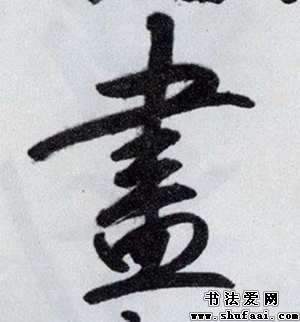 畫
书法爱网
www.shufaai.com